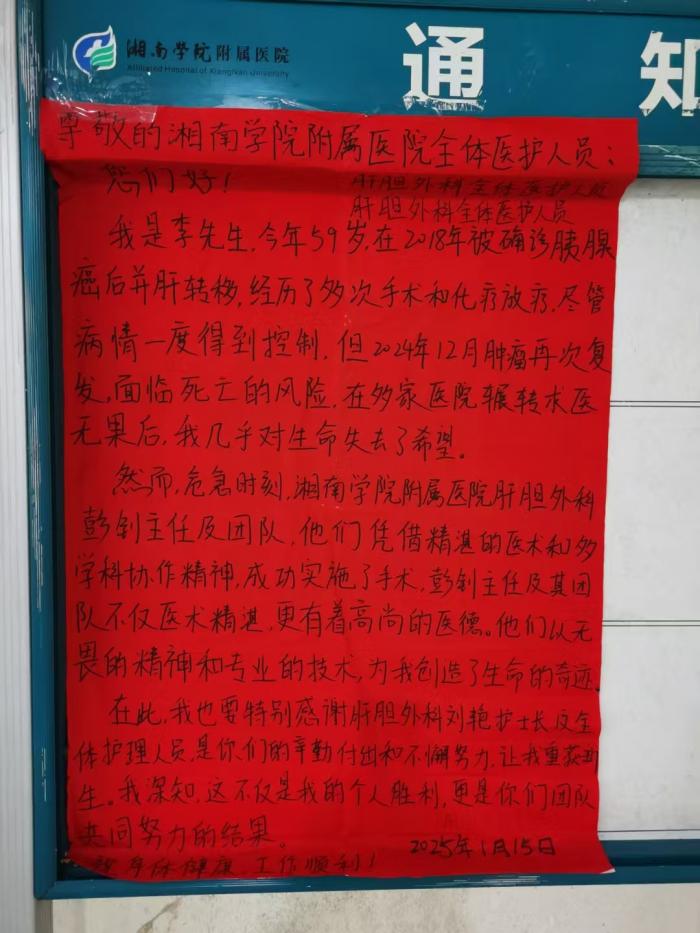 湘南学院附属医院
Affiliated Hospital of XiangNan University
通知
尊敬的湘南学院附属医院全体医护人员：
您们好！
肝胆外科全体医护人员
肝胆外科全体医护人员
我是李先生，今年59岁，在2018年被确诊胰腺
癌后并肝转移，经历了多次手术和化疗放疗，尽管
病情一度得到控制，但2024年12月肿瘤再次复
发，面临死亡的风险，在多家医院辗转求医
无果后，我几乎对生命失去了希望。
然而，危急时刻，湘南学院附属医院肝胆外科
彭钊主任及团队，他们凭借精湛的医术和多
学科协作精神，成功实施了手术，彭钊主任及其团
队不仅医术精湛，更有着高尚的医德。他们以无
畏的精神和专业的技术，为我创造了生命的奇迹。
在此，我也要特别感谢肝胆外科刘艳护士长及全
体护理人员，是你们的辛勤付出和不懈努力，让我重获新
生。我深知，这不仅是我的个人胜利，更是你们团队
共同努力的结果。
2025年1月15日
身体健康，工作顺利！